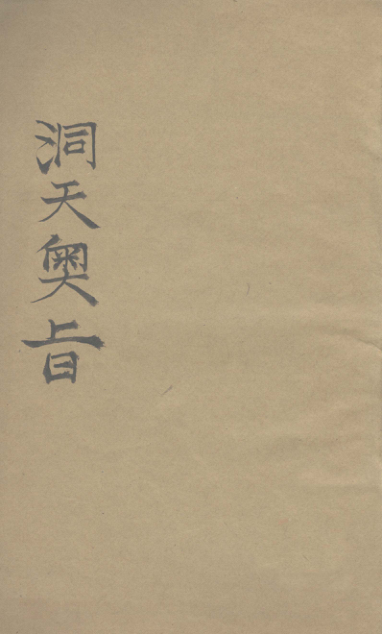 洞天奧旨